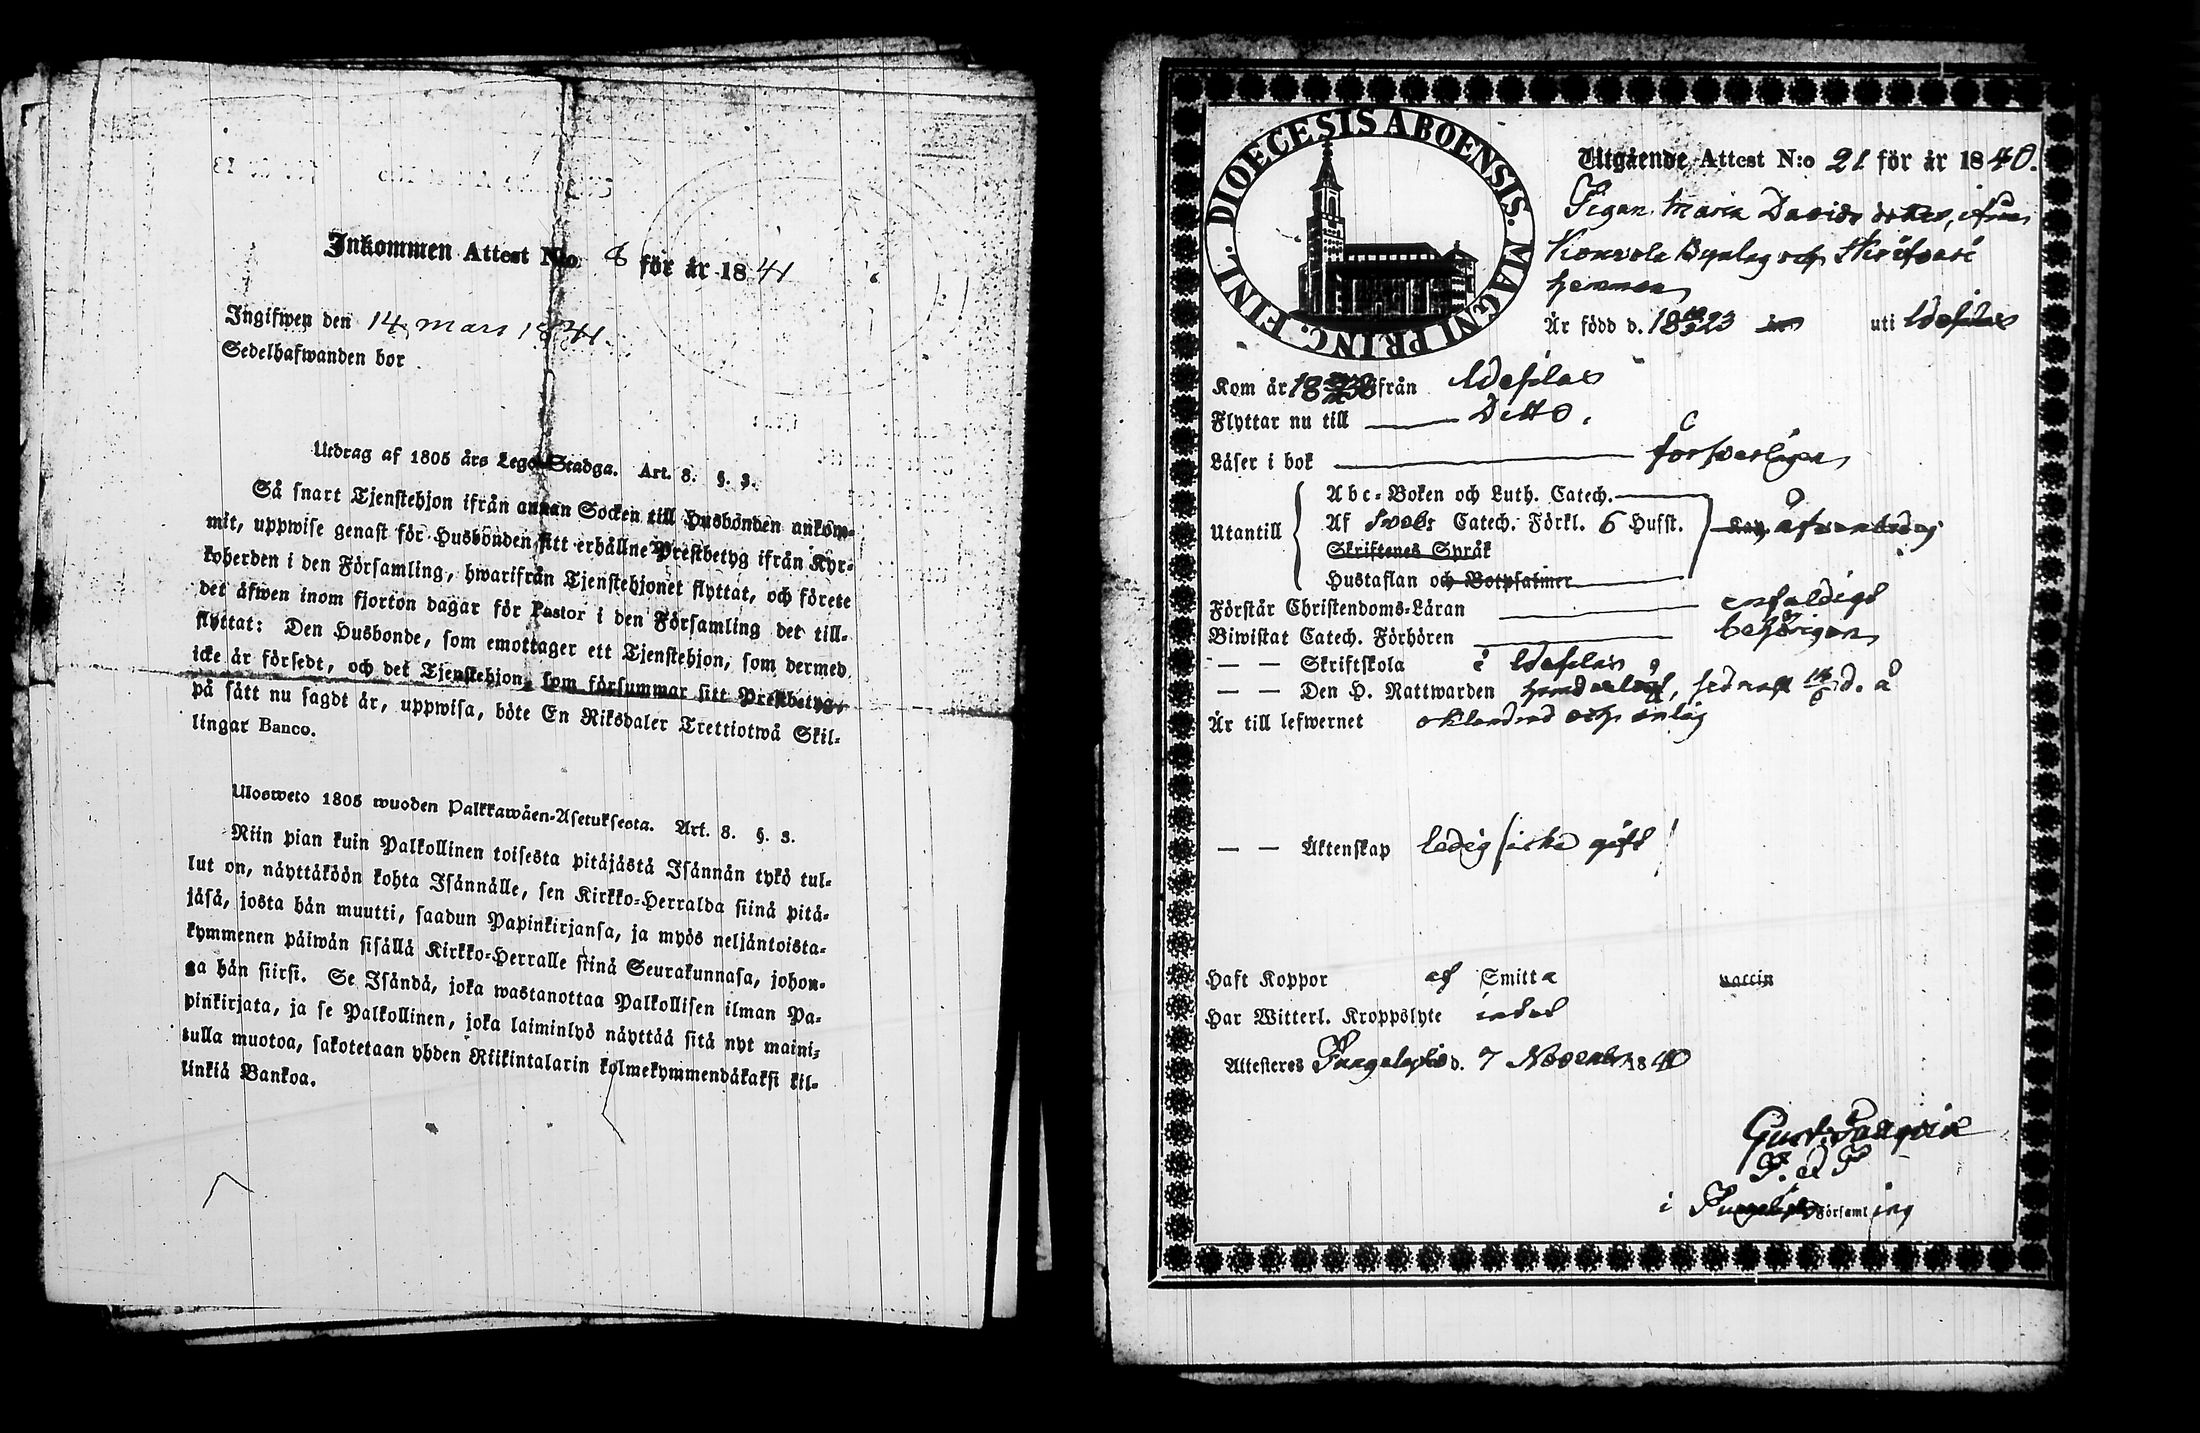 Inkommen Attest N:o 8 för år 1841
Ingifwen den 14 mars 1841.
Sedelhafwanden bor
Utdrag af 1805 års Lego-Stadga. Art. 8. §. 3.
Så snart Tjenstehjon ifrån annan Socken till Husbonden ankom-
mit, uppwise genast för Husbonden sitt erhållne Prestbetyg ifrån Kyr-
koherden i den Församling, hwarifrån Tjenstehjonet flyttat, och förete
det äfwen inom fjorton dagar för Pastor i den Församling det till-
flyttat: Den Husbonde, som emottager ett Tjenstehjon, som dermed
icke är försedt, och det Tjenstehjon, som försummar sitt Prestbetyg,
på sätt nu sagdt är, uppwisa, böte En Riksdaler Trettiotwå Skil-
lingar Banco.
Ulosweto 1805 wuoden Palkkawäen-Asetuksesta. Art. 8. §. 3.
Niin pian kuin Palkollinen toisesta pitäjästä Isännän tykö tul-
lut on, näyttäköön kohta Isännälle, sen Kirkko-Herralda siinä pitä-
jäsä, josta hän muutti, saadun Papinkirjansa, ja myös neljäntoista-
kymmenen päiwän sisällä Kirkko-Herralle siinä Seurakunnasa, johon-
ga hän siirsi. Se Isändä, joka wastanottaa Palkollisen ilman Pa-
pinkirjata, ja se Palkollinen, joka laiminlyö näyttää sitä nyt maini-
tulla muotoa, sakotetaan yhden Riikintalarin kolmekymmendäkaksi kil-
linkiä Bankoa.
DIOECESIS ABOENSIS. MAGNI PRINC. FINL.
Utgående Attest N:o 21 för år 1840.
Pigan Maria Davids dotter, ifrån
Konvola Bynlag och
hemman
Är född d. 1823 uti
Kom år 18 ifrån
Flyttar nu till Ditto.
Läser i bok försvarligen
Utantill
Abc-Boken och Luth. Catech.
Af Sveb: Catech. Förkl. 6 Hufst.
Skriftenes Språk
Hustaflan och Botpsalmer
Förstår Christendoms-Läran enfaldigt
Biwistat Catech. Förhören behörigen
— — Skriftskola i
— — Den H. Nattwarden sednast d. å
Är till lefwernet oklandrad och
— — Äktenskap ledig (icke gift)
Haft Koppor af Smitta vaccin
Har Witterl. Kroppslyte intet
Attesteres d. 7 November 1840
Gust.
P. ad P
i Församling